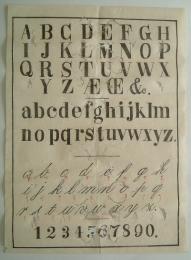 ABCDEFGH
IJKLMNOP
QRSTUVWX
YZÆŒ&c.
abcdefghijklm
nopqrstuvwxyz.
a b c d e f g h
i j k l m n o p q
r s t u v w x y z.
1234567890.